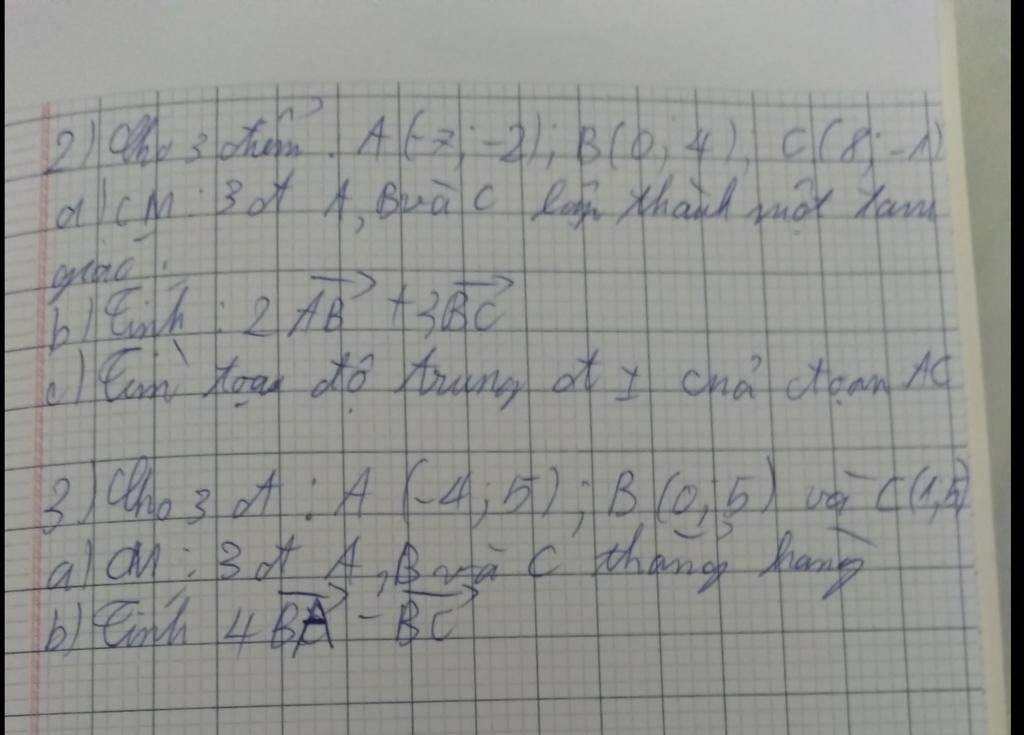 2) Cho 3 điểm : A (-7 ; -2) ; B (0 ; 4), C (8 ; -1)
a) CM : 3 đ A, B và C lập thành một tam
giác.
b) Tính : 2 AB + 3 BC
c) Tìm toạ độ trung đ I của đoạn AC
3) Cho 3 đ : A (-4 ; 5) ; B (0 ; 5) và C (1 ; 5)
a) CM : 3 đ A, B và C thẳng hàng
b) Tính 4 BA - BC